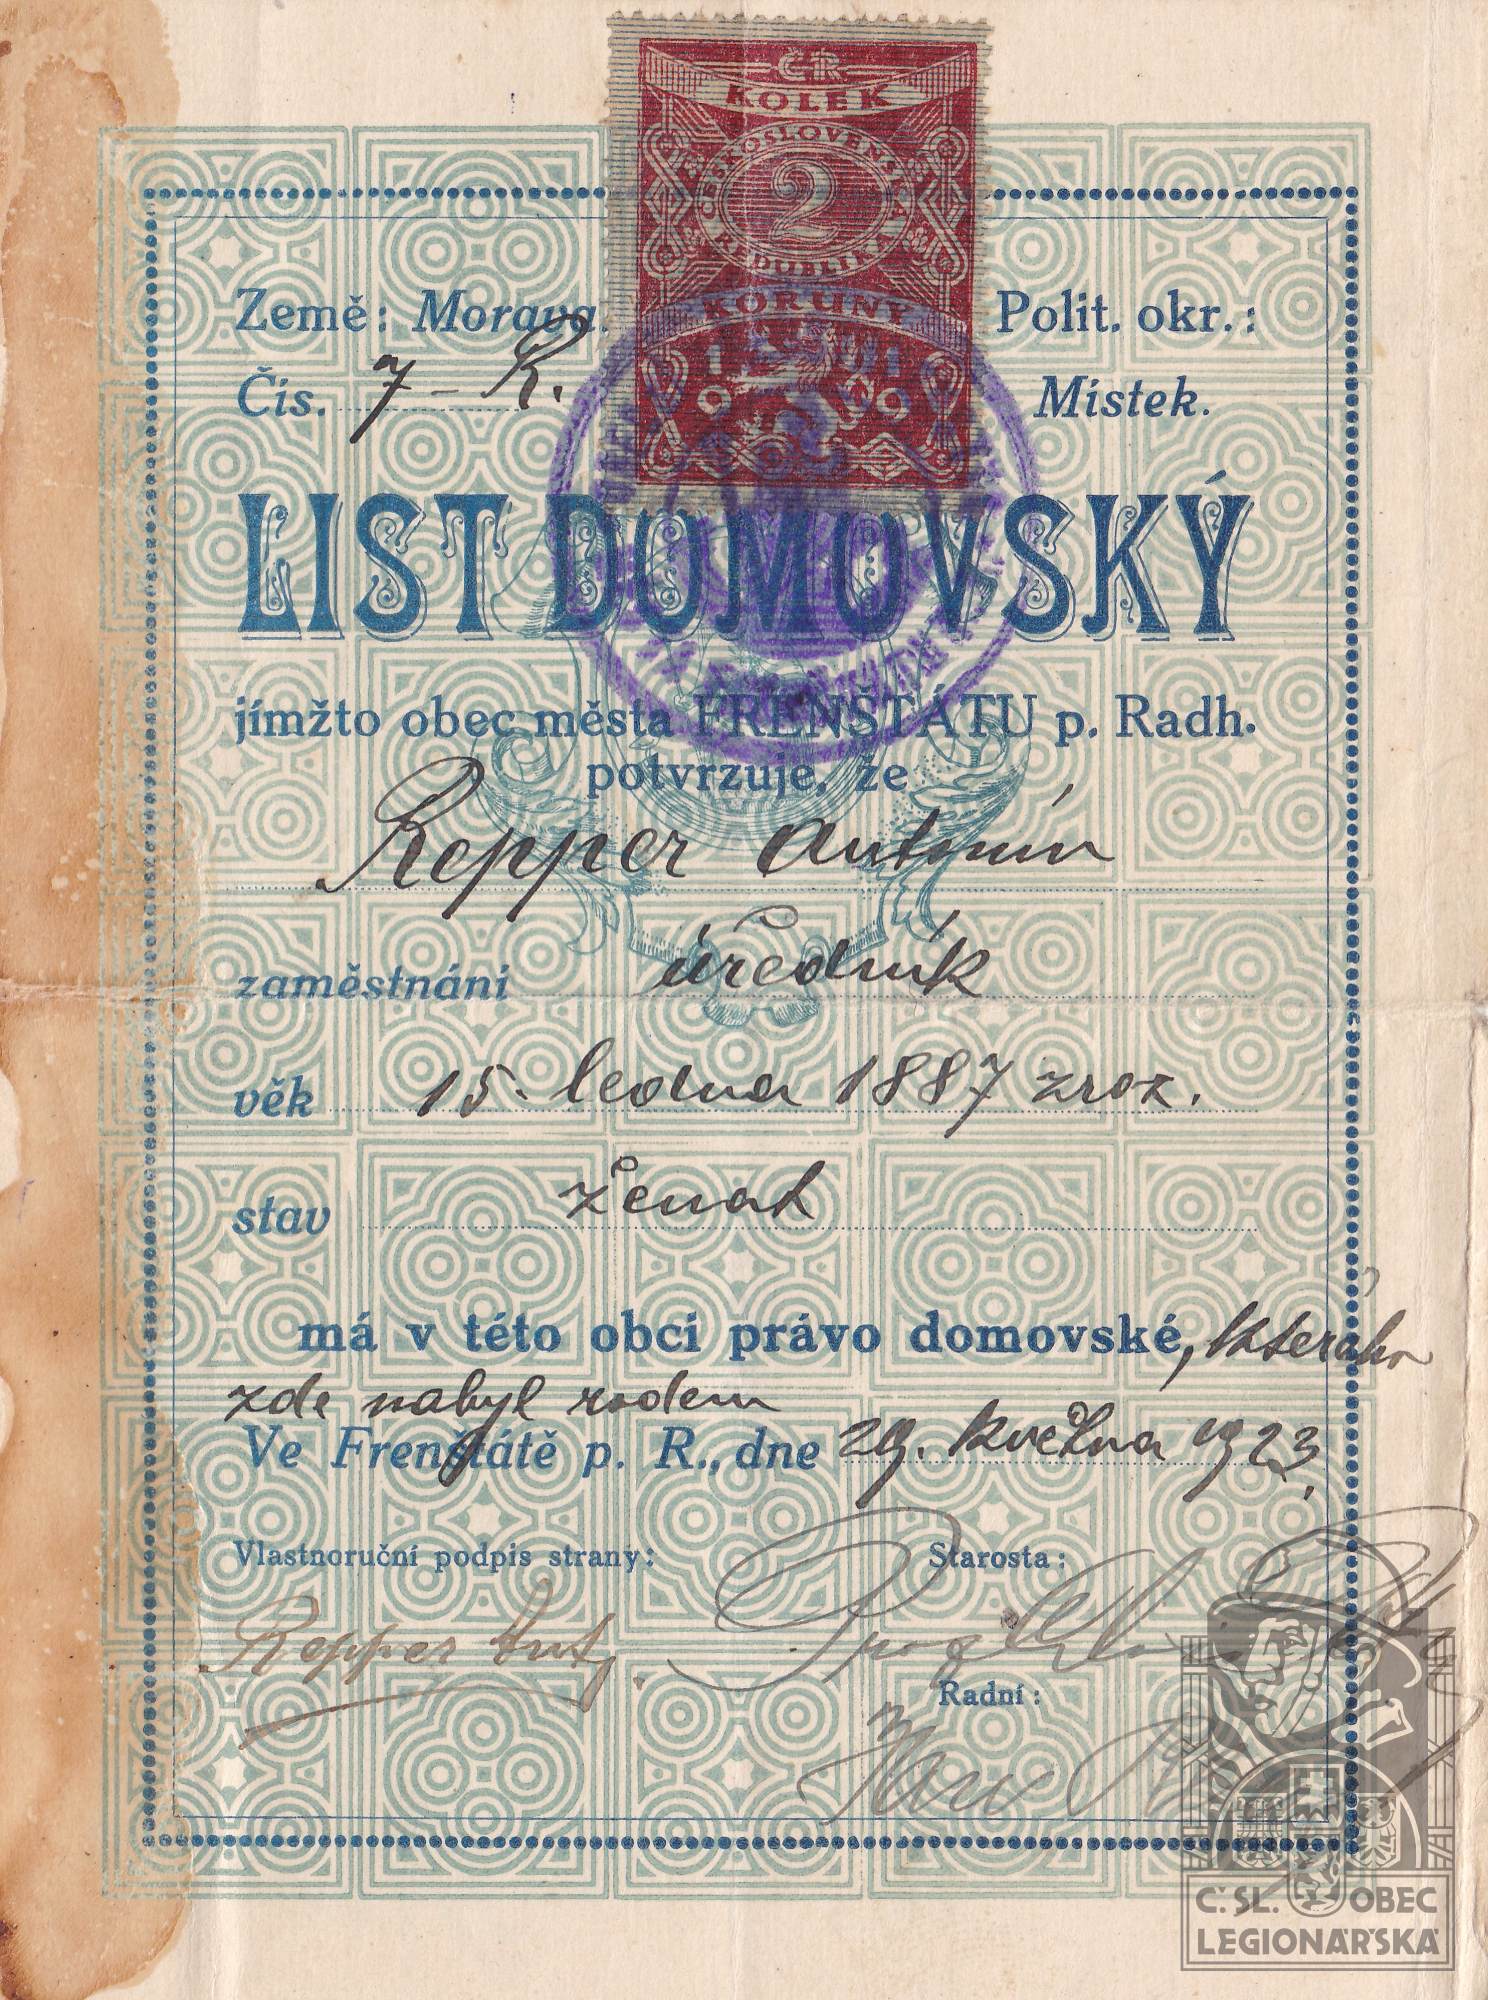 ČR
KOLEK
ČESKOSLOVENSKÁ
2
REPUBLIKA
KORUNY
1919
Země: Morava.
Polit. okr.:
Čís. 7 - R.
Místek.
LIST DOMOVSKÝ
jímžto obec města FRENŠTÁTU p. Radh.
potvrzuje, že
Repper Antonín
zaměstnání úředník
věk 15. ledna 1887 zroz.
stav ženat
má v této obci právo domovské, kteréhо
zde nabyl rodem
Ve Frenštátě p. R., dne 29. května 1923.
Vlastnoruční podpis strany:
Starosta:
Repper Ant.
Radní:
Č.SL. OBEC
LEGIONÁŘSKÁ